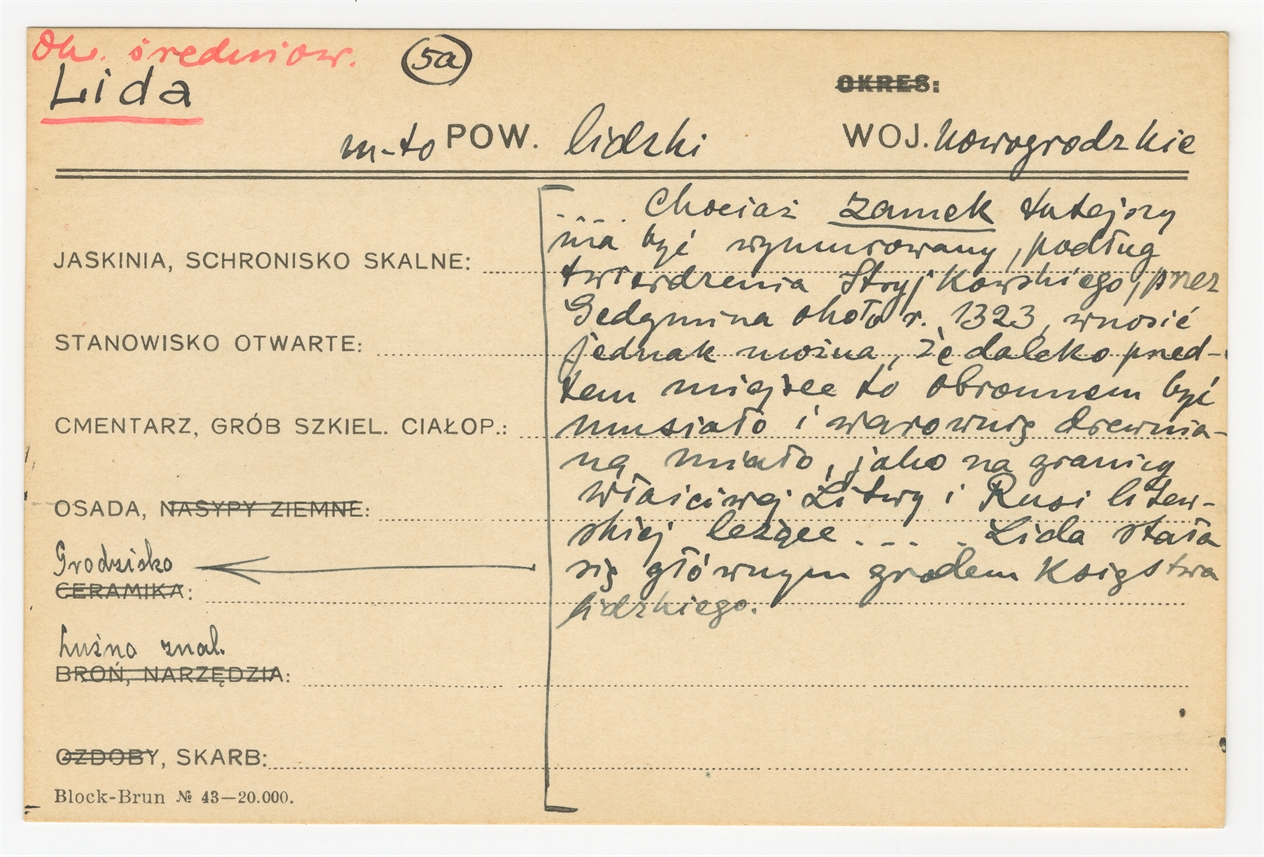 Ok. średniow.
5a
Lida
OKRES:
m-to POW. lidzki WOJ. nowogrodzkie
.... Chociaż zamek tutejszy
ma być wymurowany, podług
JASKINIA, SCHRONISKO SKALNE:
twierdzenia Stryjkowskiego, przez
Gedymina około r. 1323, wnosić
STANOWISKO OTWARTE:
jednak można, że daleko przed-
tem miejsce to obronnem być
CMENTARZ, GRÓB SZKIEL. CIAŁOP.:
musiało i warownię drewnia-
ną miało, jako na granicy
właściwej Litwy i Rusi litew-
OSADA, NASYPY ZIEMNE:
skiej leżące .... Lida stała
Grodzisko
się głównym grodem Księstwa
CERAMIKA:
lidzkiego.
Luźno znal.
BROŃ, NARZĘDZIA:
OZDOBY, SKARB:
Block-Brun № 43—20.000.